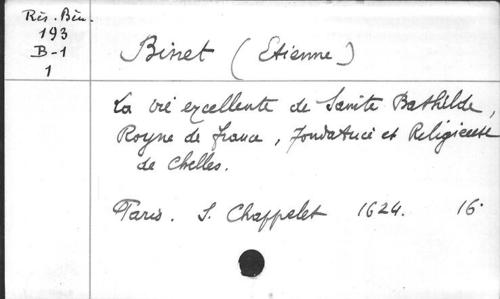 Rés. Bén.
193
B-1
1
Binet (Etienne)
La vie excellente de Sainte Bathilde,
Royne de france, fondatrice et Religieuse
de Chelles.
Paris. S. Chappelet 1624. 16°